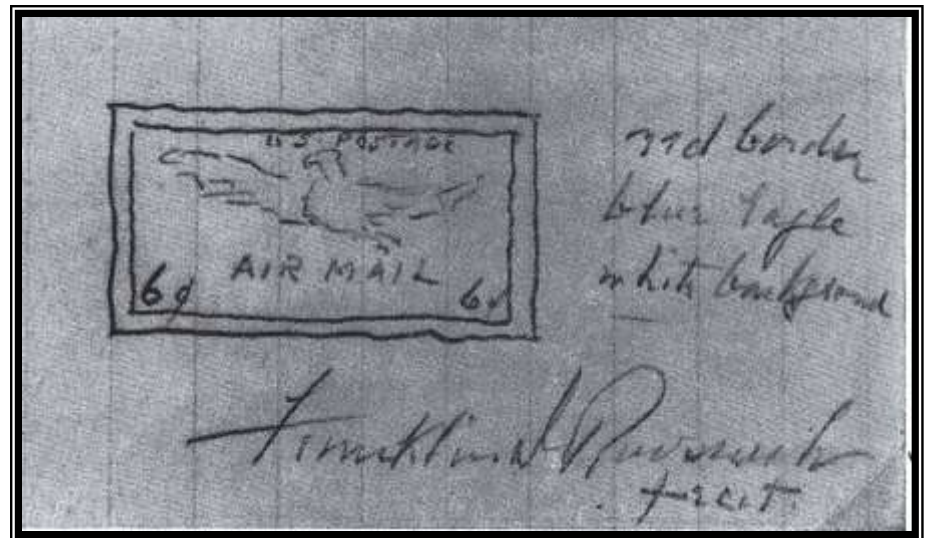 U S POSTAGE
AIR MAIL
6¢ 6¢
red border
blue Eagle
white background
Franklin D Roosevelt
fecit.